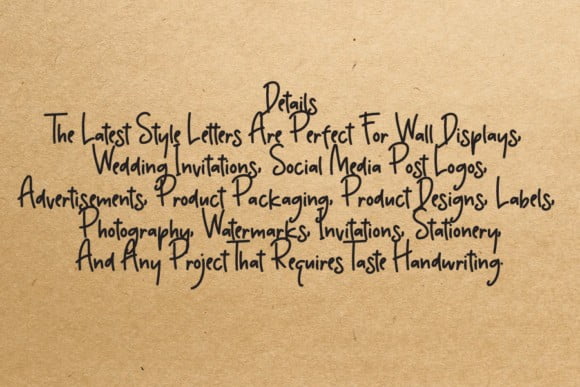 Details
The Latest Style Letters Are Perfect For Wall Displays,
Wedding Invitations, Social Media Post Logos,
Advertisements, Product Packaging, Product Designs, Labels,
Photography, Watermarks, Invitations, Stationery
And Any Project That Requires Taste Handwriting.